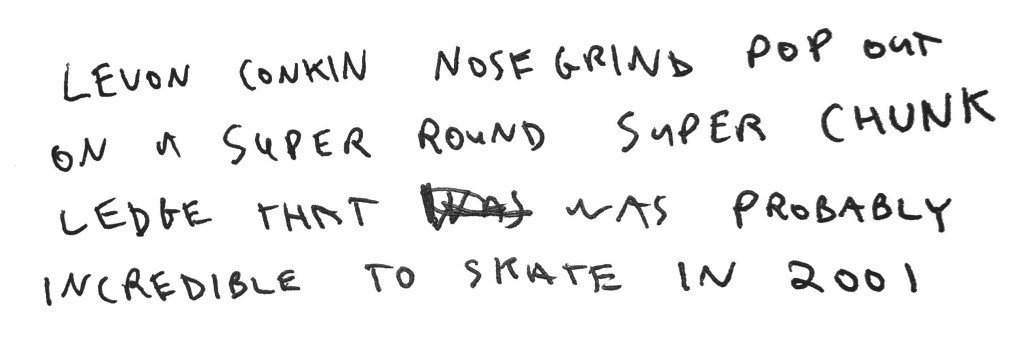 LEVON CONKIN NOSEGRIND POP OUT
ON A SUPER ROUND SUPER CHUNK
LEDGE THAT WAS PROBABLY
INCREDIBLE TO SKATE IN 2001